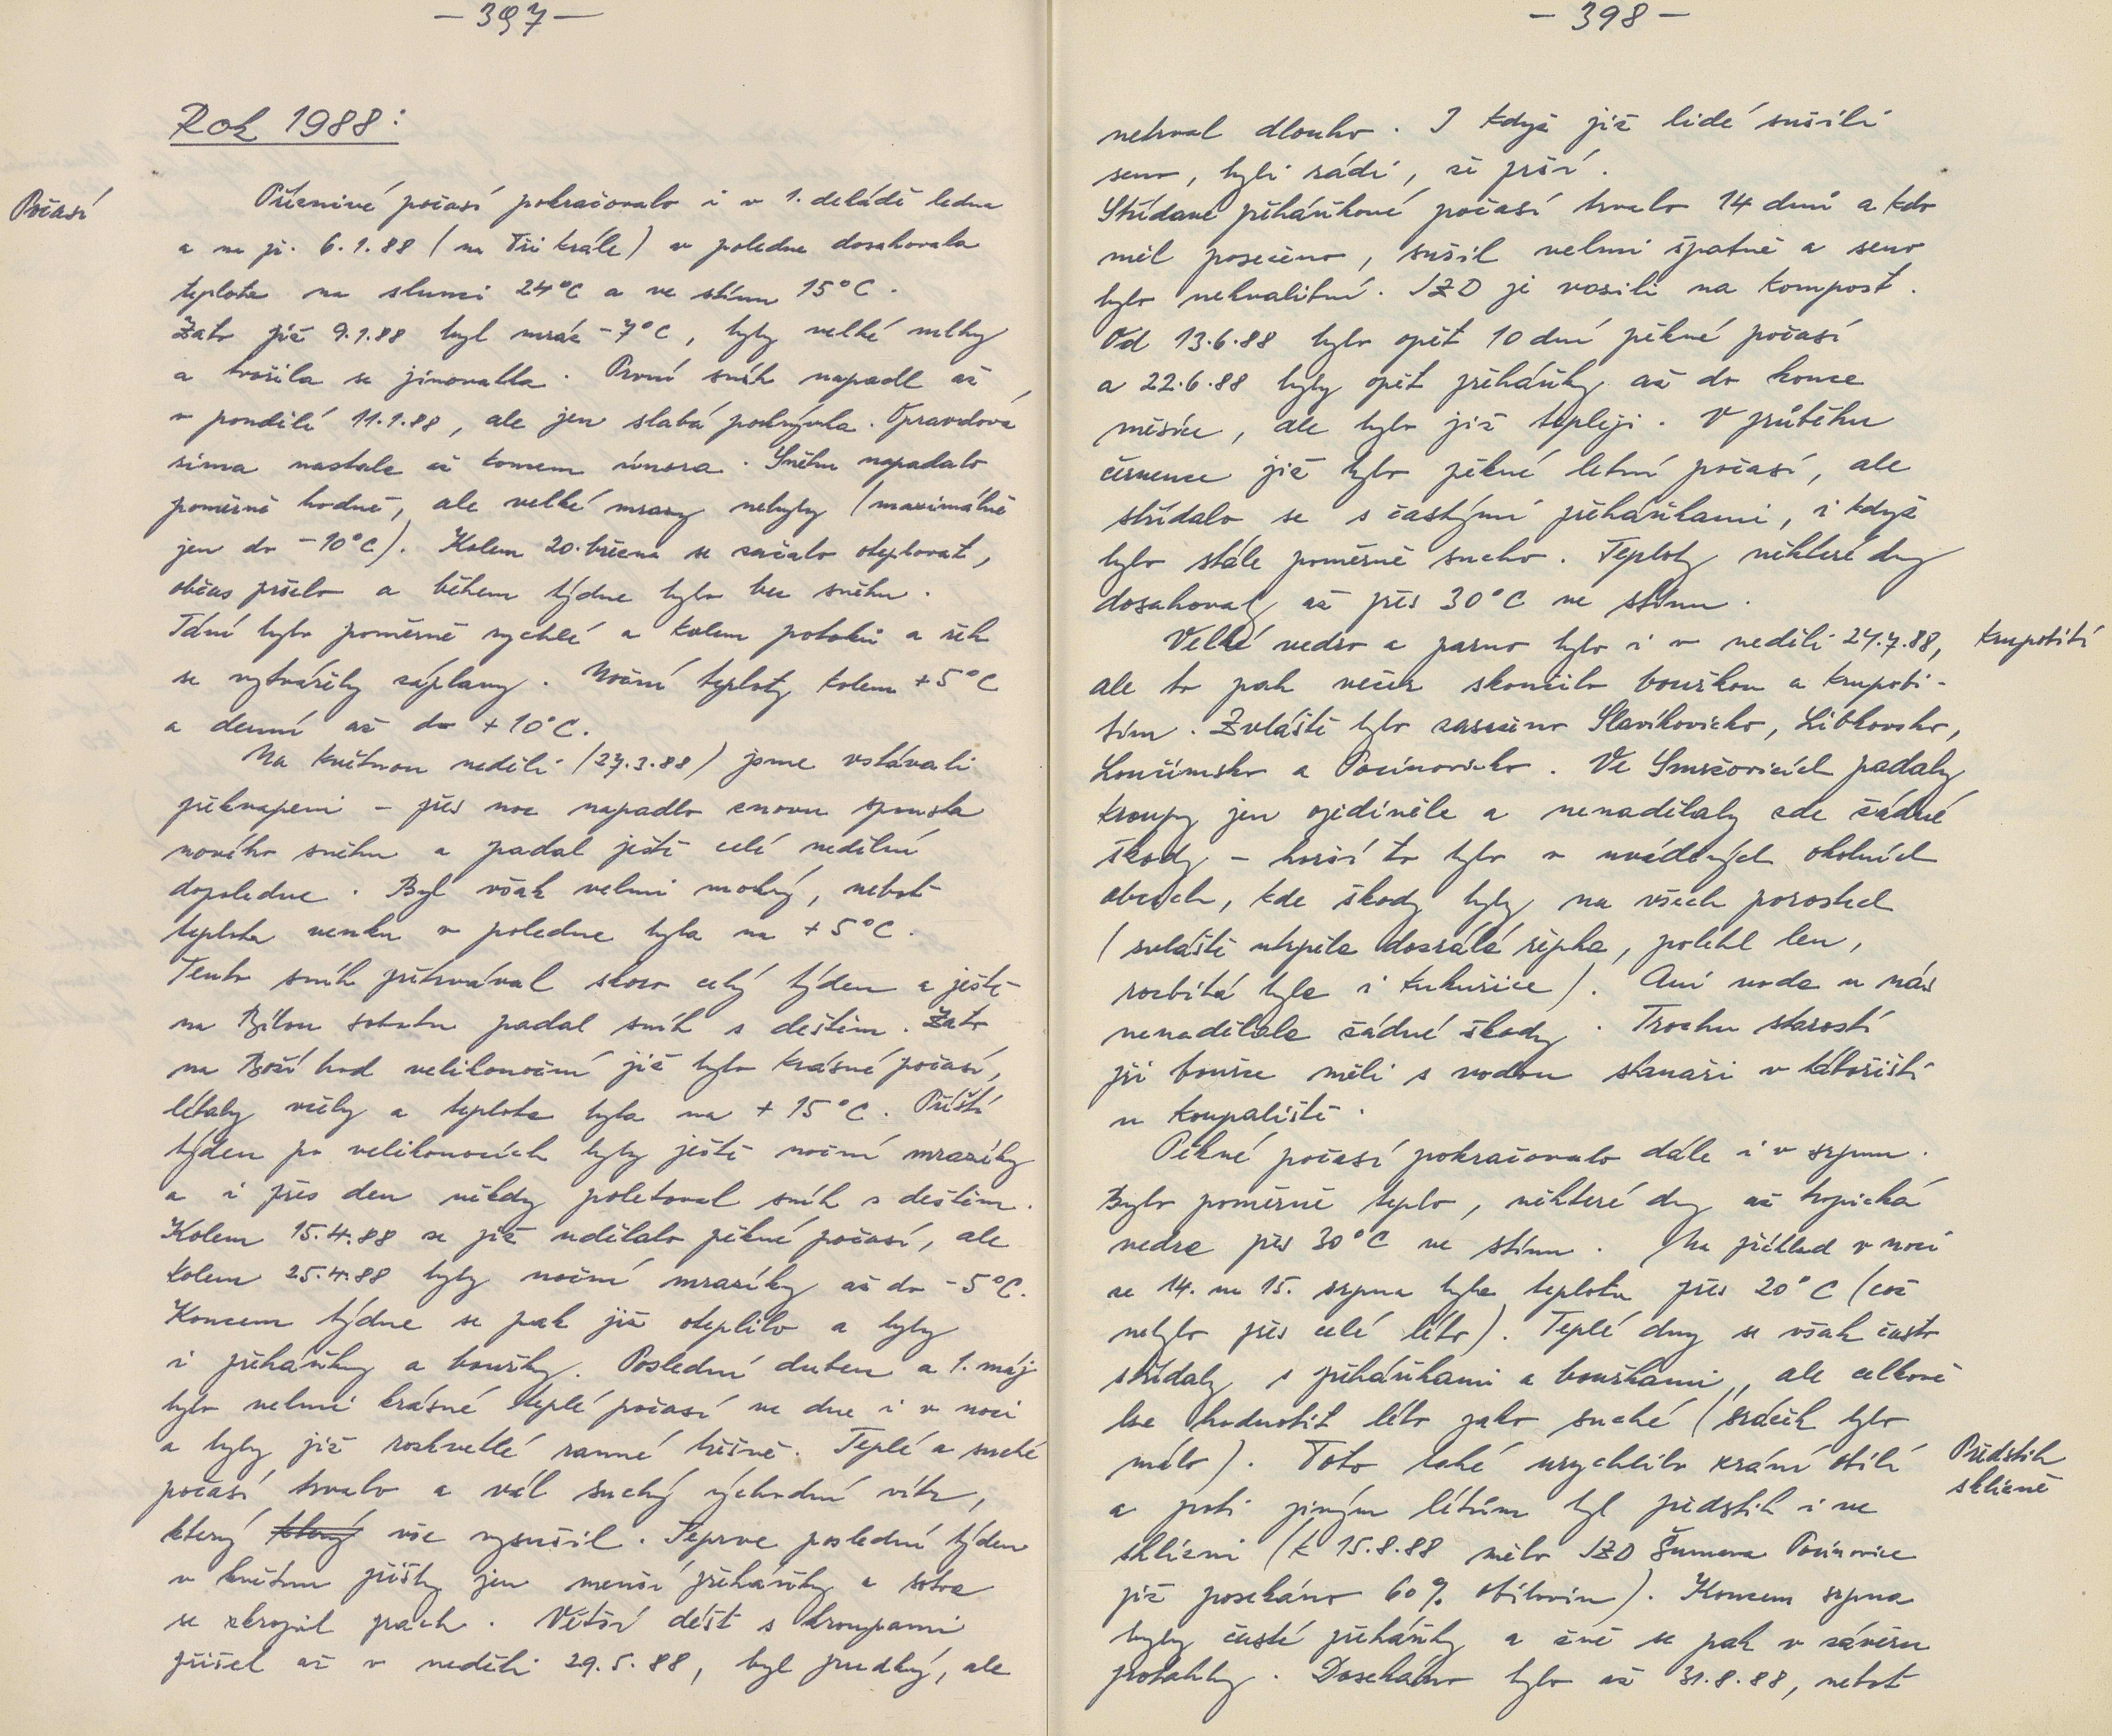 - 397 -
Rok 1988:
Počasí
Příznivé počasí pokračovalo i v 1. dekádě ledna
a na př. 6.1.88 (na Tři krále) v poledne dosahovala
teplota na slunci 24°C a ve stínu 15°C.
Zato již 9.1.88 byl mráz -7°C, byly velké mlhy
a tvořila se jinovatka. První sníh napadl až
v pondělí 11.1.88, ale jen slabá pokrývka. Opravdová
zima nastala až koncem února. Sněhu napadalo
poměrně hodně, ale velké mrazy nebyly (maximálně
jen do -10°C). Kolem 20. března se začalo oteplovat,
občas pršelo a během týdne bylo bez sněhu.
Tání bylo poměrně rychlé a kolem potoků a řek
se vytvářely záplavy. Noční teploty kolem +5°C
a denní až do +10°C.
Na květnou neděli (27.3.88) jsme vstávali
překvapeni - přes noc napadlo znovu spousta
nového sněhu a padal ještě celé nedělní
dopoledne. Byl však velmi mokrý, neboť
teplota venku v poledne byla na +5°C.
Tento sníh přetrvával skoro celý týden a ještě
na Bílou sobotu padal sníh s deštěm. Zato
na Boží hod velikonoční již bylo krásné počasí,
létaly včely a teplota byla na +15°C. Příští
týden po velikonocích byly ještě noční mrazíky
a i přes den někdy poletoval sníh s deštěm.
Kolem 15.4.88 se již udělalo pěkné počasí, ale
kolem 25.4.88 byly noční mrazíky až do -5°C.
Koncem týdne se pak již oteplilo a byly
i přeháňky a bouřky. Poslední duben a 1. máj
bylo velmi krásné teplé počasí ve dne i v noci
a byly již rozkvetlé ranné třešně. Teplé a suché
počasí trvalo a vál suchý východní vítr,
který který vše vysušil. Teprve poslední týden
v květnu přišly jen menší přeháňky a sotva
se zkropil prach. Větší déšť s kroupami
přišel až v neděli 29.5.88, byl prudký, ale
- 398 -
netrval dlouho. I když již lidé sušili
seno, byli rádi, že prší.
Střídavé přeháňkové počasí trvalo 14 dnů a kdo
měl posečeno, sušil velmi špatně a seno
bylo nekvalitní. JZD je vozili na kompost.
Od 13.6.88 bylo opět 10 dní pěkné počasí
a 22.6.88 byly opět přeháňky až do konce
měsíce, ale bylo již tepleji. V průběhu
července již bylo pěkné letní počasí, ale
střídalo se s častými přeháňkami, i když
bylo stále poměrně sucho. Teploty některé dny
dosahovaly až přes 30°C ve stínu.
Velké vedro a parno bylo i v neděli 24.7.88,
Krupobití
ale to pak večer skončilo bouřkou a krupobi-
tím. Zvláště bylo zasaženo Slavíkovicko, Libkovsko,
Loučimsko a Pocinovicko. Ve Smržovicích padaly
kroupy jen ojediněle a nenadělaly zde žádné
škody - horší to bylo v uvedených okolních
obcích, kde škody byly na všech porostech
(zvláště utrpěla dozrálá řepka, polehl len,
rozbitá byla i kukuřice). Ani voda u nás
nenadělala žádné škody. Trochu starostí
při bouřce měli s vodou stanaři v tábořišti
u koupaliště.
Pěkné počasí pokračovalo dále i v srpnu.
Bylo poměrně teplo, některé dny až tropická
vedra přes 30°C ve stínu. Na příklad v noci
ze 14. na 15. srpna byla teplota přes 20°C (což
nebylo přes celé léto). Teplé dny se však často
střídaly s přeháňkami a bouřkami, ale celkově
lze hodnotit léto jako suché (srážek bylo
málo). Toto také urychlilo zrání obilí
Předstih
sklizně
a proti jiným létům byl předstih i ve
sklizni (k 15.8.88 mělo JZD Šumava Pocinovice
již posekáno 60% obilovin). Koncem srpna
byly časté přeháňky a žně se pak v závěru
protáhly. Dosekáno bylo až 31.8.88, neboť